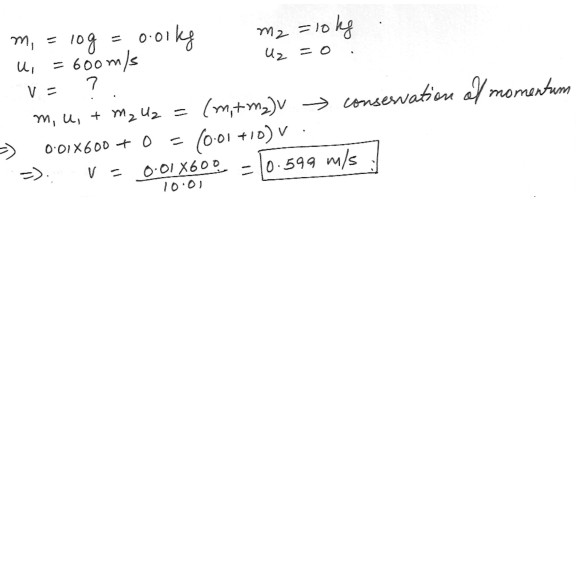 m₁ = 10g = 0.01kg m₂ = 10kg.
u₁ = 600m/s u₂ = 0.
v = ?.
m₁u₁ + m₂u₂ = (m₁+m₂)v → conservation of momentum
⇒ 0.01×600 + 0 = (0.01+10)v.
⇒. v = 0.01×600/10.01 = 0.599 m/s.